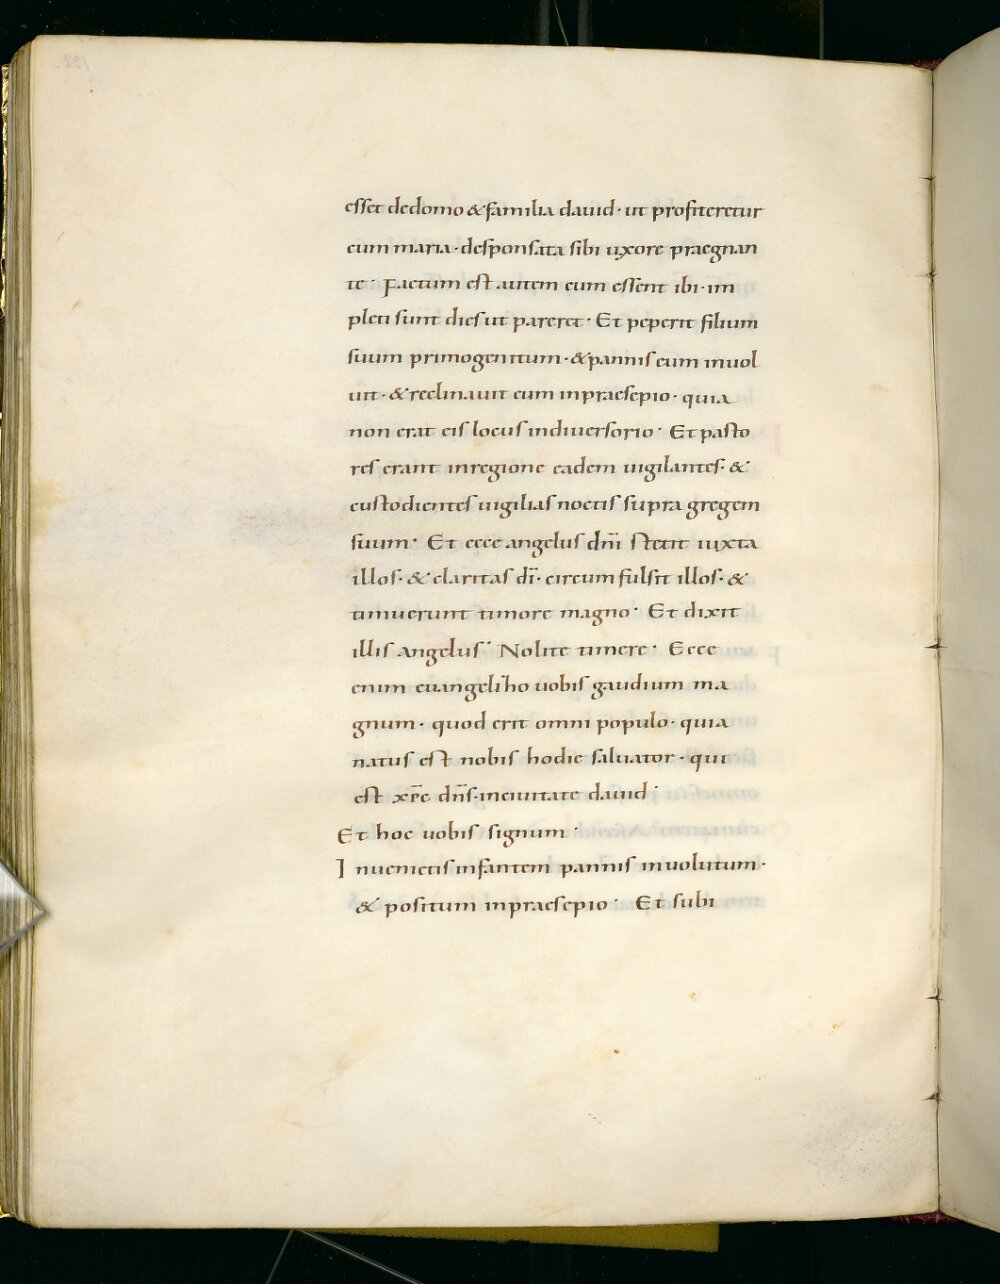 esset dedomo &familia dauid· ut profiteretur
cum maria· desponsata sibi uxore praegnan
te· Factum est autem cum essent ibi· im
pleti sunt dies ut pareret· Et peperit filium
suum primogenitum· &pannis eum inuol
uit· &reclinauit eum inpraesepio· quia
non erat eis locus indiuersorio· Et pasto
res erant inregione eadem uigilantes· &
custodientes uigilias noctis supra gregem
suum· Et ecce angelus dñi stetit iuxta
illos· & claritas dī· circumfulsit illos· &
timuerunt timore magno· Et dixit
illis angelus· Nolite timere· Ecce
enim euangelizo uobis gaudium ma
gnum· quod erit omni populo· quia
natus est nobis hodie saluator· qui
est xp̄c dñs· inciuitate dauid·
Et hoc uobis signum·
Inuenietis infantem pannis inuolutum·
& positum inpraesepio· Et subi